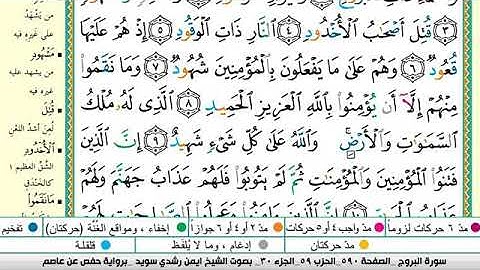 ٣ قُتِلَ أَصْحَٰبُ ٱلْأُخْدُودِ ٤ ٱلنَّارِ ذَاتِ ٱلْوَقُودِ ٥ إِذْ هُمْ عَلَيْهَا
قُعُودٌ ٦ وَهُمْ عَلَىٰ مَا يَفْعَلُونَ بِٱلْمُؤْمِنِينَ شُهُودٌ ٧ وَمَا نَقَمُوا۟
مِنْهُمْ إِلَّآ أَن يُؤْمِنُوا۟ بِٱللَّهِ ٱلْعَزِيزِ ٱلْحَمِيدِ ٨ ٱلَّذِى لَهُۥ مُلْكُ
ٱلسَّمَٰوَٰتِ وَٱلْأَرْضِ ۚ وَٱللَّهُ عَلَىٰ كُلِّ شَىْءٍ شَهِيدٌ ٩ إِنَّ ٱلَّذِينَ
فَتَنُوا۟ ٱلْمُؤْمِنِينَ وَٱلْمُؤْمِنَٰتِ ثُمَّ لَمْ يَتُوبُوا۟ فَلَهُمْ عَذَابُ جَهَنَّمَ وَلَهُمْ
غيره فيه
مَشْهُودٍ
من يشهد
عليه
غيره فيه
قُتِلَ
لُعِنَ أشدّ اللّعْنِ
ٱلْأُخْدُودِ
الشّقّ العظيم؛
كالخَنْدَقِ
مَا نَقَمُوا۟
مدّ ٦ حركات لزوماً
مدّ واجب ٤ أو ٥ حركات
مدّ ٢ أو ٤ أو ٦ جوازاً
إخفاء، ومواقع الغُنَّة (حركتان)
تفخيم
مدّ حركتان
إدغام، وما لا يُلفَظ
قلقلة
سورة البروج _الصفحة ٥٩٠_ الحزب ٥٩_ الجزء ٣٠_ بصوت الشيخ ايمن رشدي سويد _برواية حفص عن عاصم